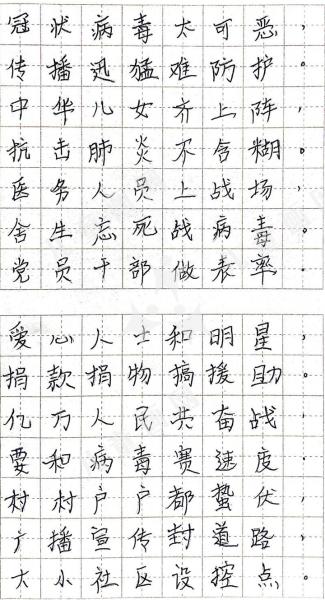 冠状病毒太可恶，
传播迅猛难防护。
中华儿女齐上阵，
抗击肺炎不含糊。
医务人员上战场，
舍生忘死战病毒。
党员干部做表率。
爱心人士和明星，
捐款捐物搞援助。
亿万人民共奋战，
要和病毒赛速度.
村村户户都蛰伏，
广播宣传封道路，
大小社区设控点。